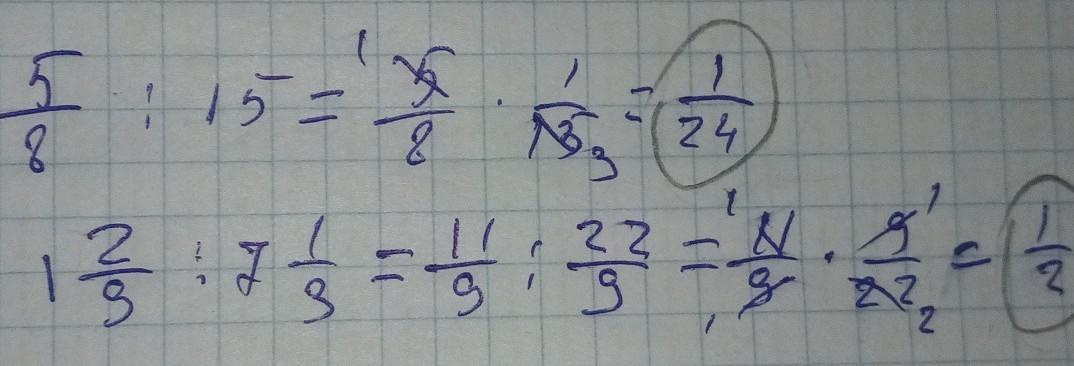 5/8 : 15 = 5/8 · 1/15 = 1/24
1 2/9 : 7 1/3 = 11/9 : 22/9 = 11/9 · 9/22 = 1/2